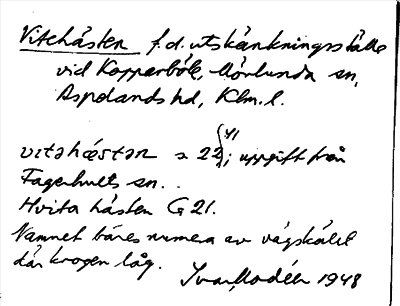 Vitehästen f.d. utskänkningsställe
vid Kopparböle, Mörlunda sn,
Aspelands hd, Klm. l.
vitəhæstən s 22 41; uppgift från
Fagerhults sn.
Hvita hästen G 21.
Namnet bäres numera av vägskälet
där krogen låg.
Ivar Modéer 1948